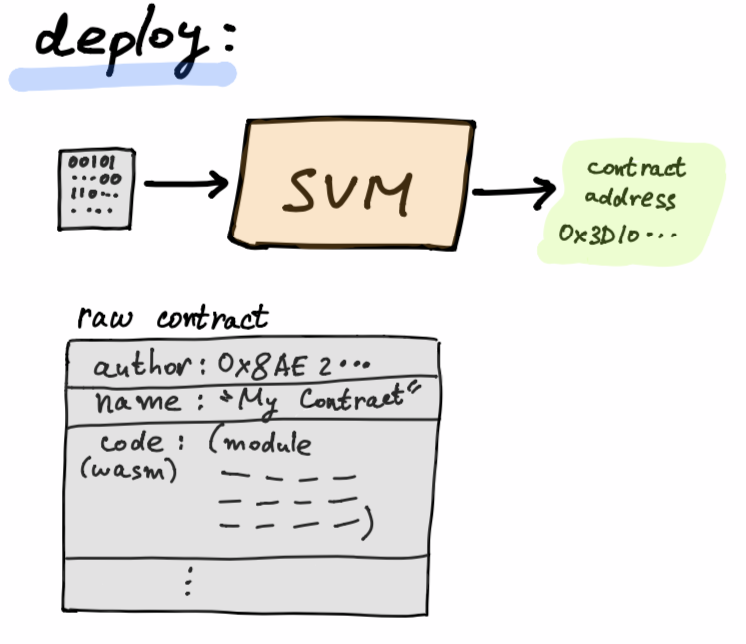 deploy:
00101
...00
110...
....
SVM
contract
address
0x3D10...
raw contract
author: 0x8AE2...
name: "My Contract"
code: (module
(wasm)
— — — —
— — — —
— — — —)
⋮